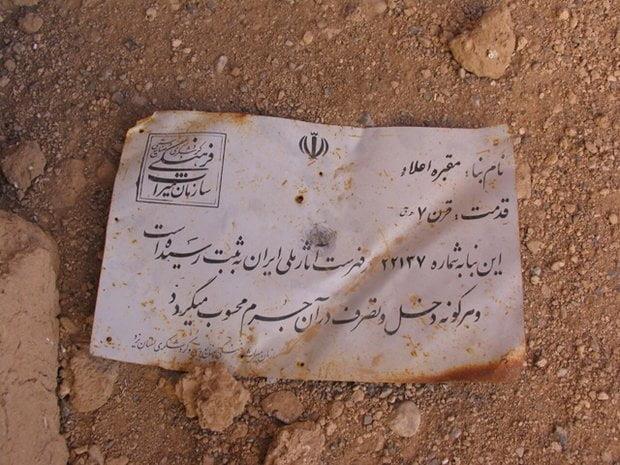 سازمان میراث فرهنگی
نام بنا: مقبره اعلاء
قدمت: قرن ۷ هـ ق
این بنا به شماره ۲۲۱۳۷ در فهرست آثار ملی ایران به ثبت رسیده است
و هر گونه دخل و تصرف در آن جرم محسوب میگردد
گردشگری استان یزد